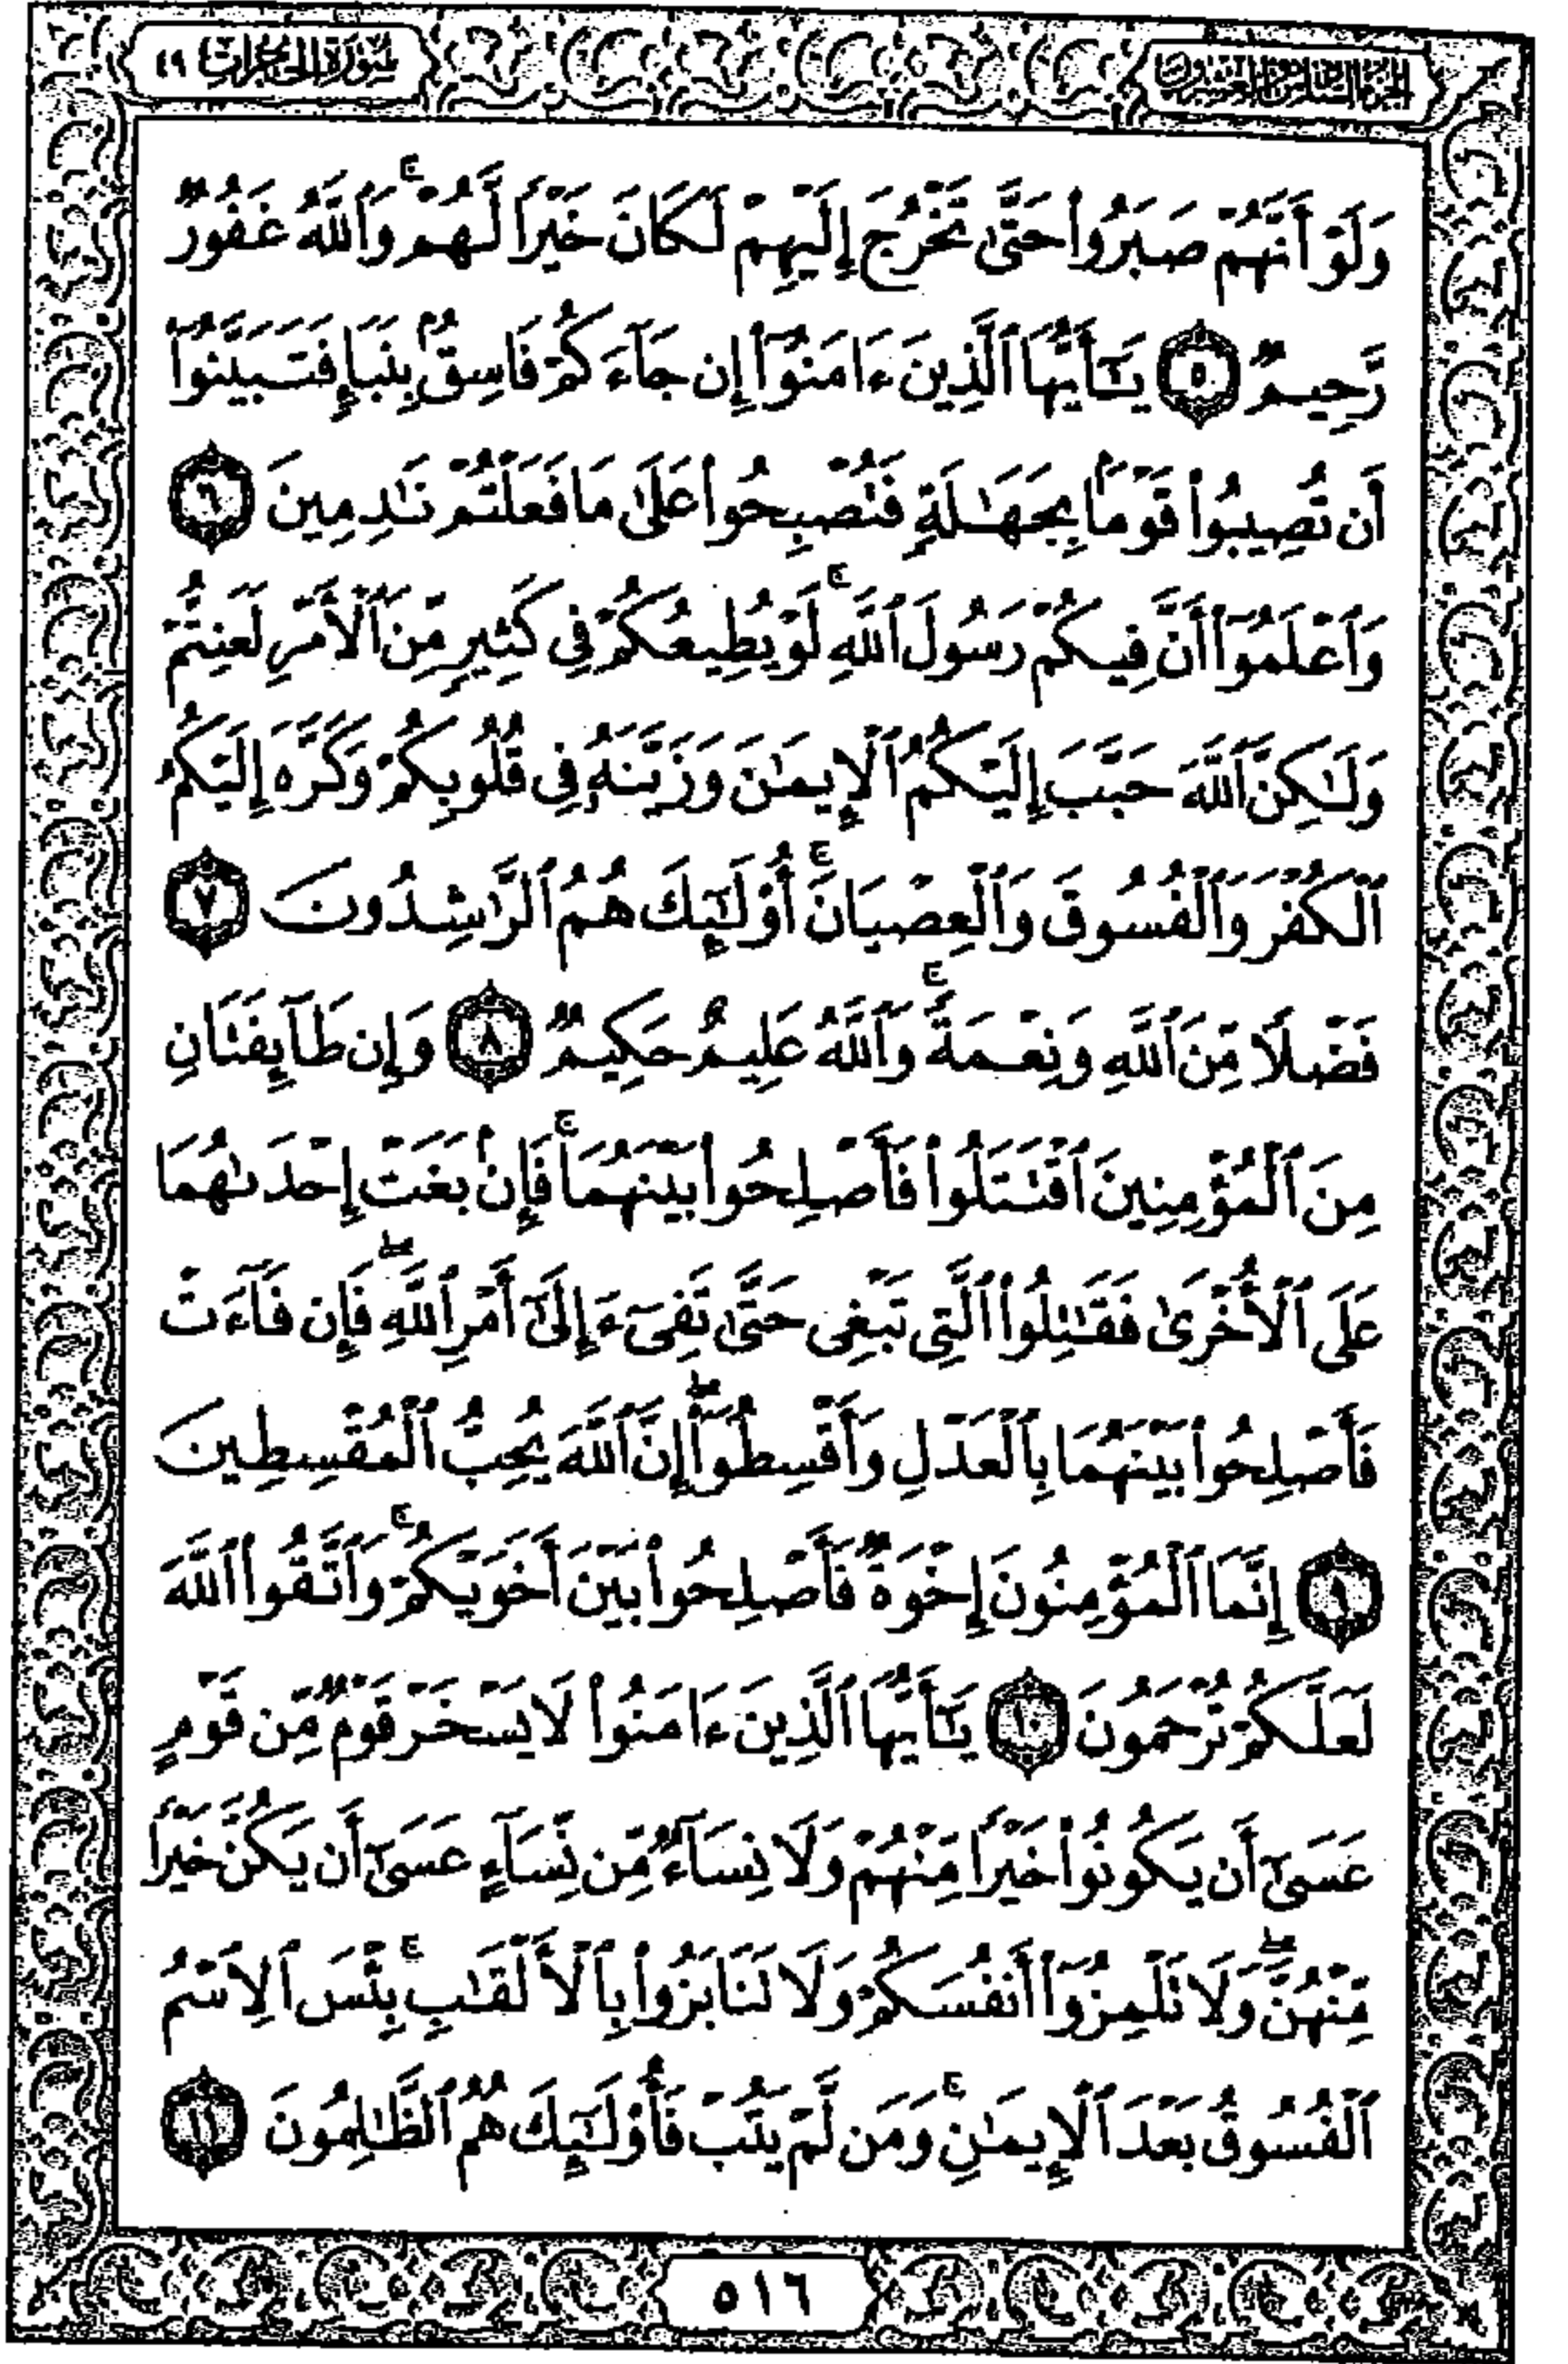 الجزء السادس والعشرون
سورة الحجرات ٤٩
وَلَوْ أَنَّهُمْ صَبَرُوا۟ حَتَّىٰ تَخْرُجَ إِلَيْهِمْ لَكَانَ خَيْرًا لَّهُمْ ۚ وَٱللَّهُ غَفُورٌ
رَّحِيمٌ ٥ يَـٰٓأَيُّهَا ٱلَّذِينَ ءَامَنُوٓا۟ إِن جَآءَكُمْ فَاسِقٌۢ بِنَبَإٍ فَتَبَيَّنُوٓا۟
أَن تُصِيبُوا۟ قَوْمًۢا بِجَهَـٰلَةٍ فَتُصْبِحُوا۟ عَلَىٰ مَا فَعَلْتُمْ نَـٰدِمِينَ ٦
وَٱعْلَمُوٓا۟ أَنَّ فِيكُمْ رَسُولَ ٱللَّهِ ۚ لَوْ يُطِيعُكُمْ فِى كَثِيرٍ مِّنَ ٱلْأَمْرِ لَعَنِتُّمْ
وَلَـٰكِنَّ ٱللَّهَ حَبَّبَ إِلَيْكُمُ ٱلْإِيمَـٰنَ وَزَيَّنَهُۥ فِى قُلُوبِكُمْ وَكَرَّهَ إِلَيْكُمُ
ٱلْكُفْرَ وَٱلْفُسُوقَ وَٱلْعِصْيَانَ ۚ أُو۟لَـٰٓئِكَ هُمُ ٱلرَّٰشِدُونَ ٧
فَضْلًا مِّنَ ٱللَّهِ وَنِعْمَةً ۚ وَٱللَّهُ عَلِيمٌ حَكِيمٌ ٨ وَإِن طَآئِفَتَانِ
مِنَ ٱلْمُؤْمِنِينَ ٱقْتَتَلُوا۟ فَأَصْلِحُوا۟ بَيْنَهُمَا ۖ فَإِنۢ بَغَتْ إِحْدَىٰهُمَا
عَلَى ٱلْأُخْرَىٰ فَقَـٰتِلُوا۟ ٱلَّتِى تَبْغِى حَتَّىٰ تَفِىٓءَ إِلَىٰٓ أَمْرِ ٱللَّهِ ۚ فَإِن فَآءَتْ
فَأَصْلِحُوا۟ بَيْنَهُمَا بِٱلْعَدْلِ وَأَقْسِطُوٓا۟ ۖ إِنَّ ٱللَّهَ يُحِبُّ ٱلْمُقْسِطِينَ
٩ إِنَّمَا ٱلْمُؤْمِنُونَ إِخْوَةٌ فَأَصْلِحُوا۟ بَيْنَ أَخَوَيْكُمْ ۚ وَٱتَّقُوا۟ ٱللَّهَ
لَعَلَّكُمْ تُرْحَمُونَ ١٠ يَـٰٓأَيُّهَا ٱلَّذِينَ ءَامَنُوا۟ لَا يَسْخَرْ قَوْمٌ مِّن قَوْمٍ
عَسَىٰٓ أَن يَكُونُوا۟ خَيْرًا مِّنْهُمْ وَلَا نِسَآءٌ مِّن نِّسَآءٍ عَسَىٰٓ أَن يَكُنَّ خَيْرًا
مِّنْهُنَّ ۖ وَلَا تَلْمِزُوٓا۟ أَنفُسَكُمْ وَلَا تَنَابَزُوا۟ بِٱلْأَلْقَـٰبِ ۚ بِئْسَ ٱلِٱسْمُ
ٱلْفُسُوقُ بَعْدَ ٱلْإِيمَـٰنِ ۚ وَمَن لَّمْ يَتُبْ فَأُو۟لَـٰٓئِكَ هُمُ ٱلظَّـٰلِمُونَ ١١
٥١٦